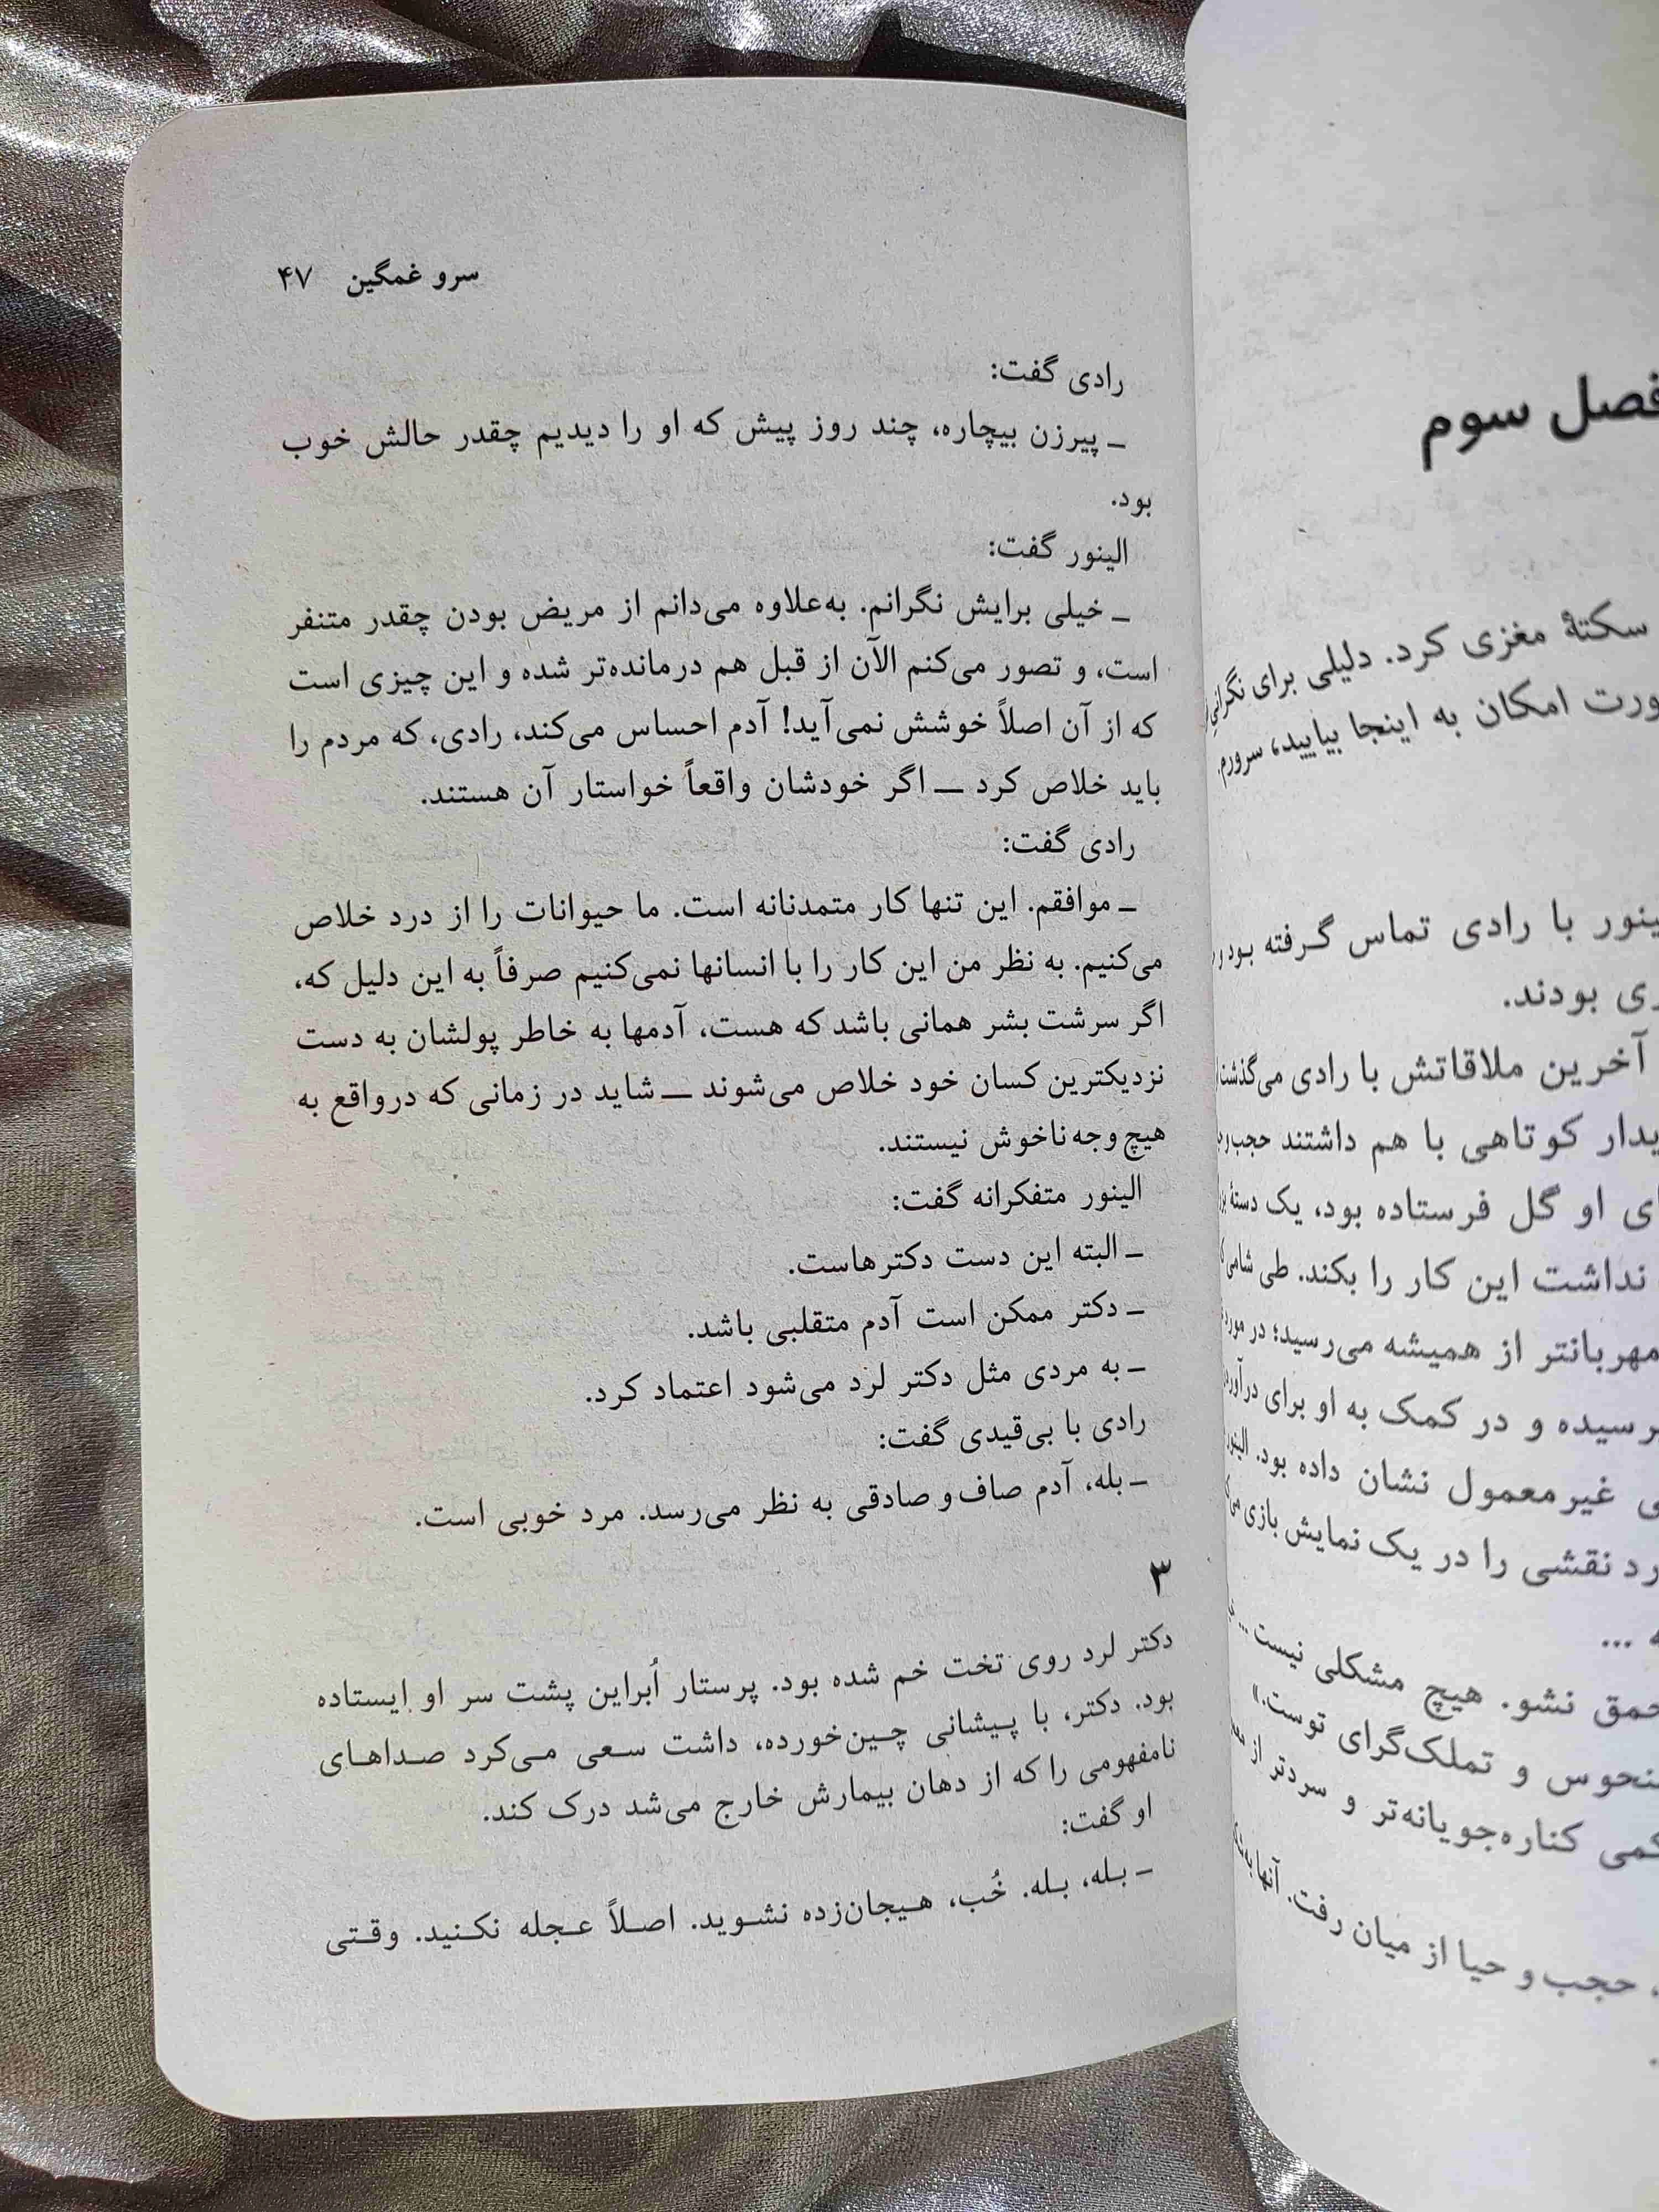 فصل سوم
سکتهٔ مغزی کرد. دلیلی برای نگرانی
امکان به اینجا بیایید، سرورم.
با رادی تماس گرفته بود و
بودند.
آخرین ملاقاتش با رادی می‌گذشت
کوتاهی با هم داشتند حجب و
او گل فرستاده بود، یک دستهٔ
نداشت این کار را بکند. طی شامی
مهربانتر از همیشه می‌رسید؛ در مورد
و در کمک به او برای
غیرمعمول نشان داده بود. الینور
نقشی را در یک نمایش بازی
...
نشو. هیچ مشکلی نیست ...
و تملک‌گرای توست.»
کناره‌جویانه‌تر و سردتر از
حجب و حیا از میان رفت. آنها
سرو غمگین ۴۷
رادی گفت:
ـ پیرزن بیچاره، چند روز پیش که او را دیدیم چقدر حالش خوب
بود.
الینور گفت:
ـ خیلی برایش نگرانم. به‌علاوه می‌دانم از مریض بودن چقدر متنفر
است، و تصور می‌کنم الآن از قبل هم درمانده‌تر شده و این چیزی است
که از آن اصلاً خوشش نمی‌آید! آدم احساس می‌کند، رادی، که مردم را
باید خلاص کرد ــ اگر خودشان واقعاً خواستار آن هستند.
رادی گفت:
ـ موافقم. این تنها کار متمدنانه است. ما حیوانات را از درد خلاص
می‌کنیم. به نظر من این کار را با انسانها نمی‌کنیم صرفاً به این دلیل که،
اگر سرشت بشر همانی باشد که هست، آدمها به خاطر پولشان به دست
نزدیکترین کسان خود خلاص می‌شوند ــ شاید در زمانی که درواقع به
هیچ وجه ناخوش نیستند.
الینور متفکرانه گفت:
ـ البته این دست دکترهاست.
ـ دکتر ممکن است آدم متقلبی باشد.
ـ به مردی مثل دکتر لرد می‌شود اعتماد کرد.
رادی با بی‌قیدی گفت:
ـ بله، آدم صاف و صادقی به نظر می‌رسد. مرد خوبی است.
۳
دکتر لرد روی تخت خم شده بود. پرستار اُبراین پشت سر او ایستاده
بود. دکتر، با پیشانی چین‌خورده، داشت سعی می‌کرد صداهای
نامفهومی را که از دهان بیمارش خارج می‌شد درک کند.
او گفت:
ـ بله، بله. خُب، هیجان‌زده نشوید. اصلاً عجله نکنید. وقتی